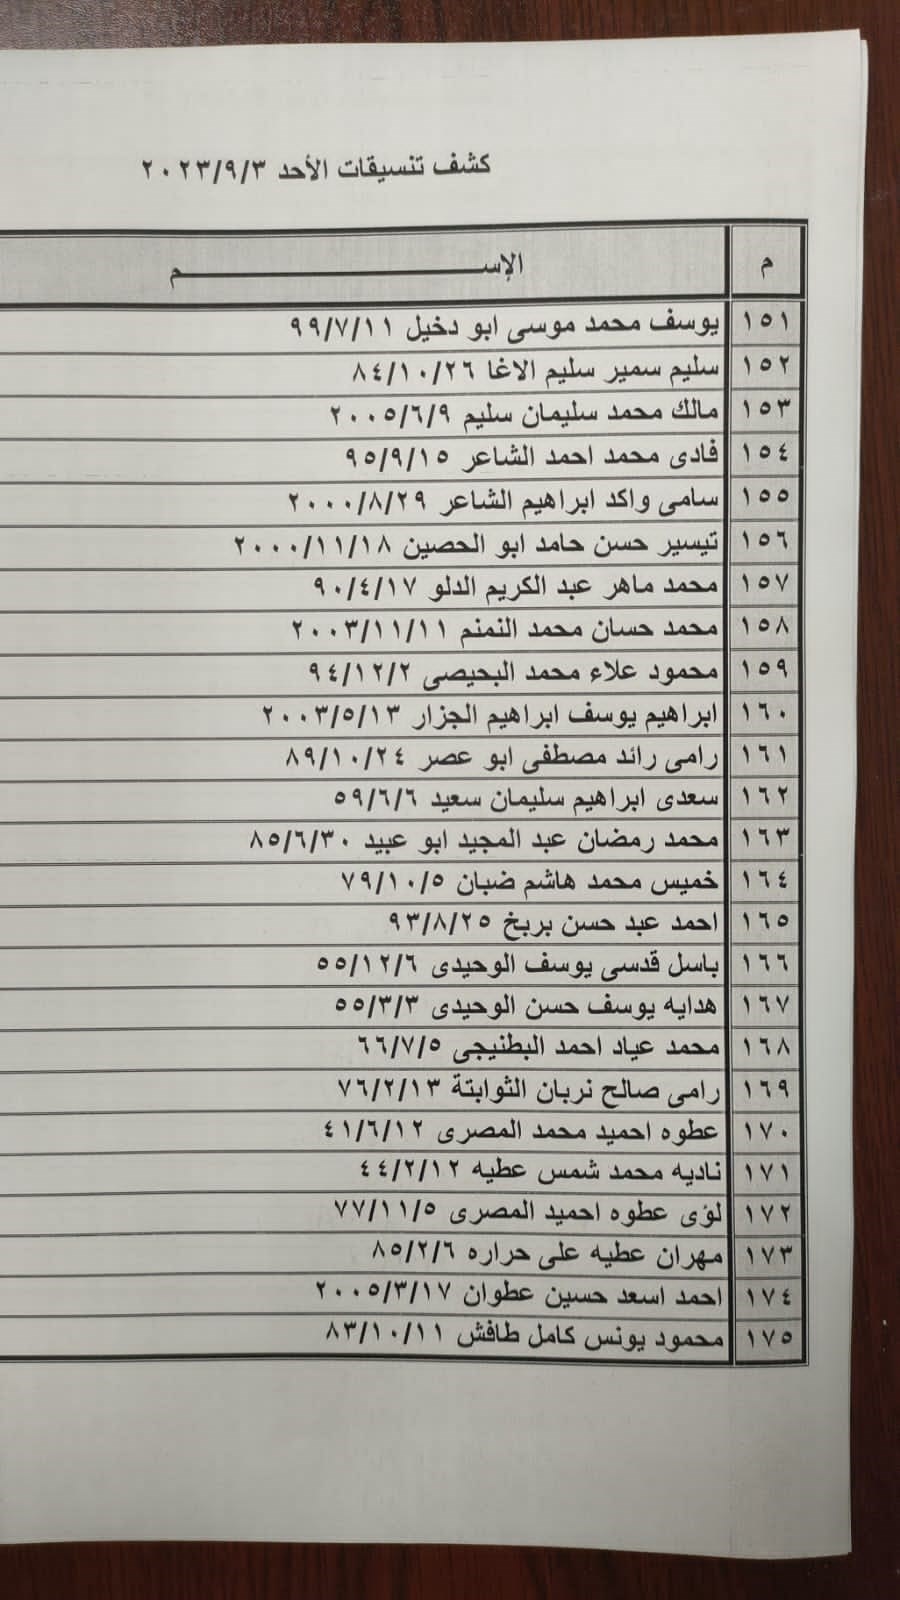 كشف تنسيقات الأحد ٢٠٢٣/٩/٣
م الإســــــــــــم
١٥١ يوسف محمد موسى ابو دخيل ٩٩/٧/١١
١٥٢ سليم سمير سليم الاغا ٨٤/١٠/٢٦
١٥٣ مالك محمد سليمان سليم ٢٠٠٥/٦/٩
١٥٤ فادى محمد احمد الشاعر ٩٥/٩/١٥
١٥٥ سامى واكد ابراهيم الشاعر ٢٠٠٠/٨/٢٩
١٥٦ تيسير حسن حامد ابو الحصين ٢٠٠٠/١١/١٨
١٥٧ محمد ماهر عبد الكريم الدلو ٩٠/٤/١٧
١٥٨ محمد حسان محمد النمنم ٢٠٠٣/١١/١١
١٥٩ محمود علاء محمد البحيصى ٩٤/١٢/٢
١٦٠ ابراهيم يوسف ابراهيم الجزار ٢٠٠٣/٥/١٣
١٦١ رامى رائد مصطفى ابو عصر ٨٩/١٠/٢٤
١٦٢ سعدى ابراهيم سليمان سعيد ٥٩/٦/٦
١٦٣ محمد رمضان عبد المجيد ابو عبيد ٨٥/٦/٣٠
١٦٤ خميس محمد هاشم ضبان ٧٩/١٠/٥
١٦٥ احمد عبد حسن بربخ ٩٣/٨/٢٥
١٦٦ باسل قدسى يوسف الوحيدى ٥٥/١٢/٦
١٦٧ هدايه يوسف حسن الوحيدى ٥٥/٣/٣
١٦٨ محمد عياد احمد البطنيجى ٦٦/٧/٥
١٦٩ رامى صالح نربان الثوابتة ٧٦/٢/١٣
١٧٠ عطوه احميد محمد المصرى ٤١/٦/١٢
١٧١ ناديه محمد شمس عطيه ٤٤/٢/١٢
١٧٢ لؤى عطوه احميد المصرى ٧٧/١١/٥
١٧٣ مهران عطيه على حراره ٨٥/٢/٦
١٧٤ احمد اسعد حسين عطوان ٢٠٠٥/٣/١٧
١٧٥ محمود يونس كامل طافش ٨٣/١٠/١١